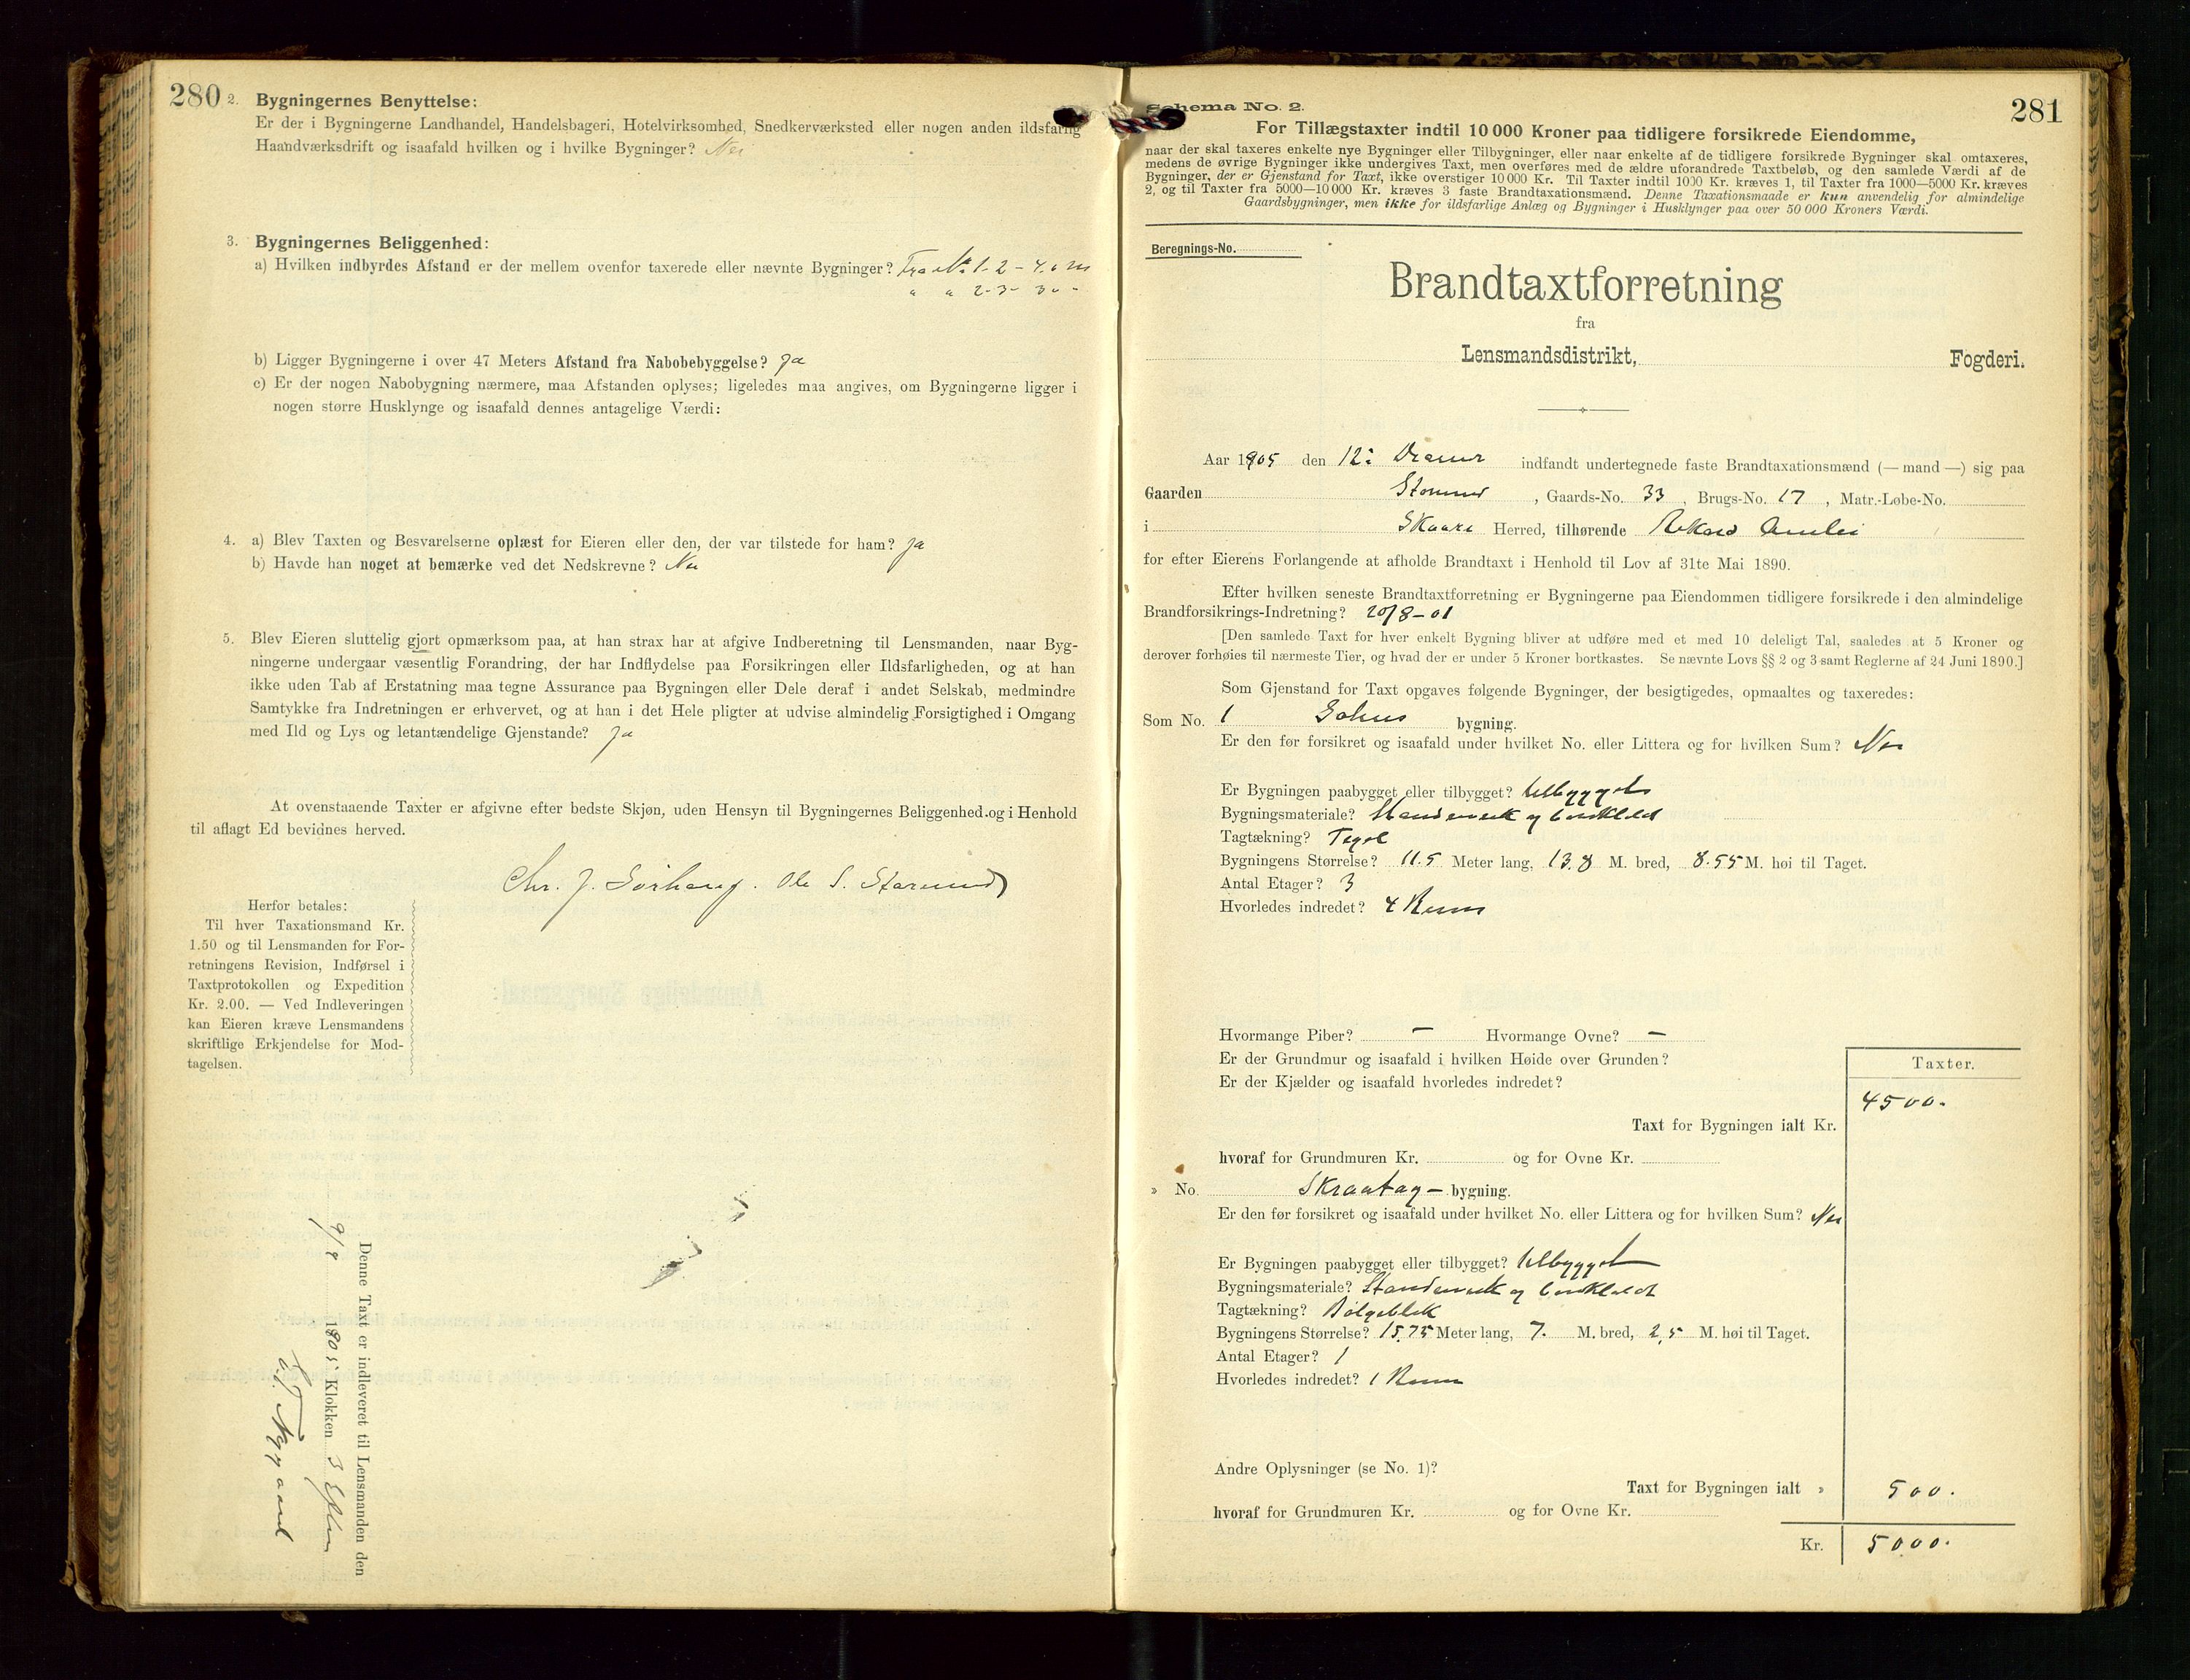 280
2. Bygningernes Benyttelse:
Er der i Bygningerne Landhandel, Handelsbageri, Hotelvirksomhed, Snedkerværksted eller nogen anden ildsfarlig
Haandværksdrift og isaafald hvilken og i hvilke Bygninger? Nei
3. Bygningernes Beliggenhed:
a) Hvilken indbyrdes Afstand er der mellem ovenfor taxerede eller nævnte Bygninger? Fra No 1-2 - 4.0 m
" " 2-3- 30 -
b) Ligger Bygningerne i over 47 Meters Afstand fra Nabobebyggelse? Ja
c) Er der nogen Nabobygning nærmere, maa Afstanden oplyses; ligeledes maa angives, om Bygningerne ligger i
nogen større Husklynge og isaafald dennes antagelige Værdi:
4. a) Blev Taxten og Besvarelserne oplæst for Eieren eller den, der var tilstede for ham? Ja
b) Havde han noget at bemærke ved det Nedskrevne? Nei
5. Blev Eieren sluttelig gjort opmærksom paa, at han strax har at afgive Indberetning til Lensmanden, naar Byg-
ningerne undergaar væsentlig Forandring, der har Indflydelse paa Forsikringen eller Ildsfarligheden, og at han
ikke uden Tab af Erstatning maa tegne Assurance paa Bygningen eller Dele deraf i andet Selskab, medmindre
Samtykke fra Indretningen er erhvervet, og at han i det Hele pligter at udvise almindelig Forsigtighed i Omgang
med Ild og Lys og letantændelige Gjenstande? Ja
At ovenstaaende Taxter er afgivne efter bedste Skjøn, uden Hensyn til Bygningernes Beliggenhed og i Henhold
til aflagt Ed bevidnes herved.
Chr. J. Sørhaug. Ole S. Starmund
Herfor betales:
Til hver Taxationsmand Kr.
1.50 og til Lensmanden for For-
retningens Revision, Indførsel i
Taxtprotokollen og Expedition
Kr. 2.00. — Ved Indleveringen
kan Eieren kræve Lensmandens
skriftlige Erkjendelse for Mod-
tagelsen.
Denne Taxt er indleveret til Lensmanden den
1905 Klokken 3 Efter
Nygaard
Schema No. 2.
281
For Tillægstaxter indtil 10 000 Kroner paa tidligere forsikrede Eiendomme,
naar der skal taxeres enkelte nye Bygninger eller Tilbygninger, eller naar enkelte af de tidligere forsikrede Bygninger skal omtaxeres,
medens de øvrige Bygninger ikke undergives Taxt, men overføres med de ældre uforandrede Taxtbeløb, og den samlede Værdi af de
Bygninger, der er Gjenstand for Taxt, ikke overstiger 10 000 Kr. Til Taxter indtil 1000 Kr. kræves 1, til Taxter fra 1000—5000 Kr. kræves
2, og til Taxter fra 5000—10 000 Kr. kræves 3 faste Brandtaxationsmænd. Denne Taxationsmaade er kun anvendelig for almindelige
Gaardsbygninger, men ikke for ildsfarlige Anlæg og Bygninger i Husklynger paa over 50 000 Kroners Værdi.
Beregnings-No.
Brandtaxtforretning
fra
Lensmandsdistrikt, Fogderi.
Aar 1905 den 12: indfandt undertegnede faste Brandtaxationsmænd (— mand —) sig paa
Gaarden , Gaards-No. 33 , Brugs-No. 17 , Matr.-Løbe-No.
i Skaare Herred, tilhørende
for efter Eierens Forlangende at afholde Brandtaxt i Henhold til Lov af 31te Mai 1890.
Efter hvilken seneste Brandtaxtforretning er Bygningerne paa Eiendommen tidligere forsikrede i den almindelige
Brandforsikrings-Indretning? 20/8-01
[Den samlede Taxt for hver enkelt Bygning bliver at udføre med et med 10 deleligt Tal, saaledes at 5 Kroner og
derover forhøies til nærmeste Tier, og hvad der er under 5 Kroner bortkastes. Se nævnte Lovs §§ 2 og 3 samt Reglerne af 24 Juni 1890.]
Som Gjenstand for Taxt opgaves følgende Bygninger, der besigtigedes, opmaaltes og taxeredes:
Som No. 1 bygning.
Er den før forsikret og isaafald under hvilket No. eller Littera og for hvilken Sum? Nei
Er Bygningen paabygget eller tilbygget? tilbygget
Bygningsmateriale? Standerverk og bordklædt
Tagtækning? Tegel
Bygningens Størrelse? 11.5 Meter lang, 13.8 M. bred, 8.55 M. høi til Taget.
Antal Etager? 3
Hvorledes indredet? 4 Rum
Hvormange Piber? — Hvormange Ovne? —
Er der Grundmur og isaafald i hvilken Høide over Grunden?
Er der Kjælder og isaafald hvorledes indredet?
Taxter.
4500.
Taxt for Bygningen ialt Kr.
hvoraf for Grundmuren Kr. og for Ovne Kr.
» No. Skraatag- bygning.
Er den før forsikret og isaafald under hvilket No. eller Littera og for hvilken Sum? Nei
Er Bygningen paabygget eller tilbygget? tilbygget
Bygningsmateriale? Standerverk og bordklædt
Tagtækning? Bølgeblik
Bygningens Størrelse? 15.75 Meter lang, 7. M. bred, 2,5 M. høi til Taget.
Antal Etager? 1
Hvorledes indredet? 1 Rum
Andre Oplysninger (se No. 1)?
Taxt for Bygningen ialt » 500.
hvoraf for Grundmuren Kr. og for Ovne Kr.
Kr. 5000.